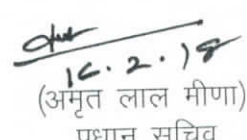 16.2.18
(अमृत लाल मीणा)
प्रधान सचिव